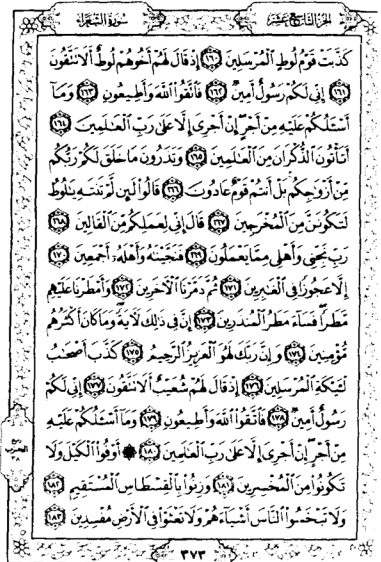 الجزء التاسع عشر
سورة الشعراء
كَذَّبَتْ قَوْمُ لُوطٍ الْمُرْسَلِينَ ١٦٠ إِذْ قَالَ لَهُمْ أَخُوهُمْ لُوطٌ أَلَا تَتَّقُونَ
١٦١ إِنِّي لَكُمْ رَسُولٌ أَمِينٌ ١٦٢ فَاتَّقُوا اللَّهَ وَأَطِيعُونِ ١٦٣ وَمَا
أَسْـَٔلُكُمْ عَلَيْهِ مِنْ أَجْرٍ إِنْ أَجْرِيَ إِلَّا عَلَىٰ رَبِّ الْعَـٰلَمِينَ ١٦٤
أَتَأْتُونَ الذُّكْرَانَ مِنَ الْعَـٰلَمِينَ ١٦٥ وَتَذَرُونَ مَا خَلَقَ لَكُمْ رَبُّكُم
مِّنْ أَزْوَٰجِكُم بَلْ أَنتُمْ قَوْمٌ عَادُونَ ١٦٦ قَالُوا لَئِن لَّمْ تَنتَهِ يَـٰلُوطُ
لَتَكُونَنَّ مِنَ الْمُخْرَجِينَ ١٦٧ قَالَ إِنِّي لِعَمَلِكُم مِّنَ الْقَالِينَ ١٦٨
رَبِّ نَجِّنِي وَأَهْلِي مِمَّا يَعْمَلُونَ ١٦٩ فَنَجَّيْنَـٰهُ وَأَهْلَهُ أَجْمَعِينَ ١٧٠
إِلَّا عَجُوزًا فِي الْغَـٰبِرِينَ ١٧١ ثُمَّ دَمَّرْنَا الْآخَرِينَ ١٧٢ وَأَمْطَرْنَا عَلَيْهِم
مَّطَرًا فَسَاءَ مَطَرُ الْمُنذَرِينَ ١٧٣ إِنَّ فِي ذَٰلِكَ لَآيَةً وَمَا كَانَ أَكْثَرُهُم
مُّؤْمِنِينَ ١٧٤ وَإِنَّ رَبَّكَ لَهُوَ الْعَزِيزُ الرَّحِيمُ ١٧٥ كَذَّبَ أَصْحَـٰبُ
لْـَٔيْكَةِ الْمُرْسَلِينَ ١٧٦ إِذْ قَالَ لَهُمْ شُعَيْبٌ أَلَا تَتَّقُونَ ١٧٧ إِنِّي لَكُمْ
رَسُولٌ أَمِينٌ ١٧٨ فَاتَّقُوا اللَّهَ وَأَطِيعُونِ ١٧٩ وَمَا أَسْـَٔلُكُمْ عَلَيْهِ
مِنْ أَجْرٍ إِنْ أَجْرِيَ إِلَّا عَلَىٰ رَبِّ الْعَـٰلَمِينَ ١٨٠ ۞ أَوْفُوا الْكَيْلَ وَلَا
تَكُونُوا مِنَ الْمُخْسِرِينَ ١٨١ وَزِنُوا بِالْقِسْطَاسِ الْمُسْتَقِيمِ ١٨٢
وَلَا تَبْخَسُوا النَّاسَ أَشْيَاءَهُمْ وَلَا تَعْثَوْا فِي الْأَرْضِ مُفْسِدِينَ ١٨٣
٣٧٣